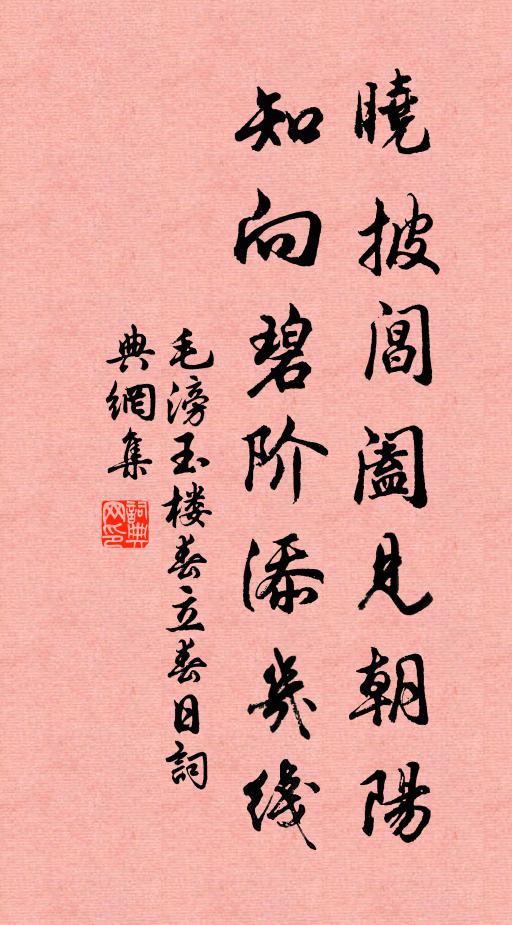 曉披閶闔見朝陽
知向碧阶添幾线
毛滂玉楼春立春日詞
典網集
詞典網印